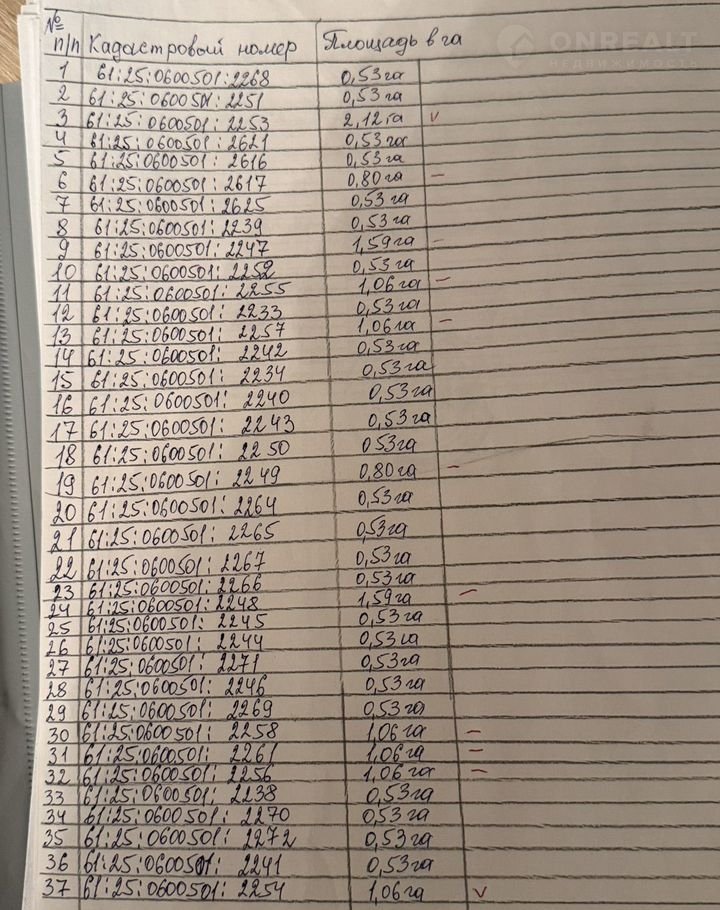 ONREALT
НЕДВИЖИМОСТЬ
№
п/п Кадастровый номер Площадь в га
1 61:25:0600501:2268 0,53га
2 61:25:0600501:2251 0,53га
3 61:25:0600501:2253 2,12га v
4 61:25:0600501:2621 0,53га
5 61:25:0600501:2616 0,53га
6 61:25:0600501:2617 0,80га –
7 61:25:0600501:2625 0,53га
8 61:25:0600501:2239 0,53га
9 61:25:0600501:2247 1,59га –
10 61:25:0600501:2252 0,53га
11 61:25:0600501:2255 1,06га –
12 61:25:0600501:2233 0,53га
13 61:25:0600501:2257 1,06га –
14 61:25:0600501:2242 0,53га
15 61:25:0600501:2234 0,53га
16 61:25:0600501:2240 0,53га
17 61:25:0600501:2243 0,53га
18 61:25:0600501:2250 053га
19 61:25:0600501:2249 0,80га –
20 61:25:0600501:2264 0,53га
21 61:25:0600501:2265 0,53га
22 61:25:0600501:2267 0,53га
23 61:25:0600501:2266 0,53га
24 61:25:0600501:2248 1,59га –
25 61:25:0600501:2245 0,53га
26 61:25:0600501:2244 0,53га
27 61:25:0600501:2271 0,53га
28 61:25:0600501:2246 0,53га
29 61:25:0600501:2269 0,53га
30 61:25:0600501:2258 1,06га –
31 61:25:0600501:2261 1,06га –
32 61:25:0600501:2256 1,06га –
33 61:25:0600501:2238 0,53га
34 61:25:0600501:2270 0,53га
35 61:25:0600501:2272 0,53га
36 61:25:0600501:2241 0,53га
37 61:25:0600501:2254 1,06га v